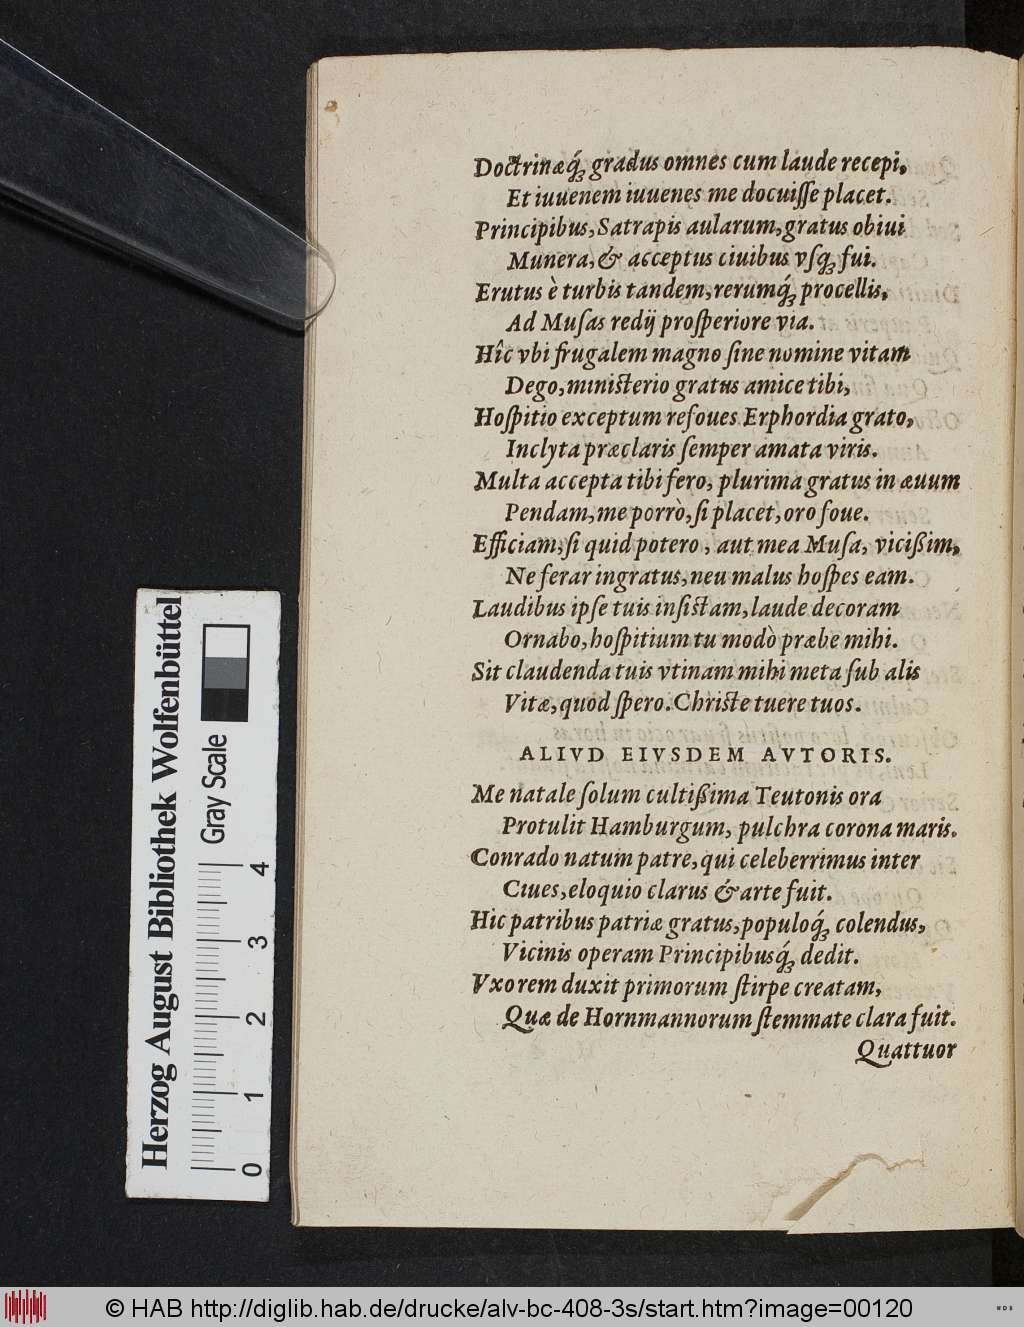 Doctrinæq́; gradus omnes cum laude recepi,
Et iuuenem iuuenes me docuiſſe placet.
Principibus, Satrapis aularum, gratus obiui
Munera, & acceptus ciuibus vſq; fui.
Erutus è turbis tandem, rerumq́; procellis,
Ad Muſas redij proſperiore via.
Hîc vbi frugalem magno ſine nomine vitam
Dego, miniſterio gratus amice tibi,
Hoſpitio exceptum refoues Erphordia grato,
Inclyta præclaris ſemper amata viris.
Multa accepta tibi fero, plurima gratus in æuum
Pendam, me porrò, ſi placet, oro foue.
Efficiam, ſi quid potero, aut mea Muſa, vicißim,
Ne ferar ingratus, neu malus hoſpes eam.
Laudibus ipſe tuis inſiſtam, laude decoram
Ornabo, hoſpitium tu modò præbe mihi.
Sit claudenda tuis vtinam mihi meta ſub alis
Vitæ, quod ſpero. Chriſte tuere tuos.
ALIVD EIVSDEM AVTORIS.
Me natale ſolum cultißima Teutonis ora
Protulit Hamburgum, pulchra corona maris.
Conrado natum patre, qui celeberrimus inter
Ciues, eloquio clarus & arte fuit.
Hic patribus patriæ gratus, populoq́; colendus,
Vicinis operam Principibusq́; dedit.
Vxorem duxit primorum ſtirpe creatam,
Quæ de Hornmannorum ſtemmate clara fuit.
Quattuor
Herzog August Bibliothek Wolfenbüttel
Gray Scale
0 1 2 3 4
© HAB http://diglib.hab.de/drucke/alv-bc-408-3s/start.htm?image=00120